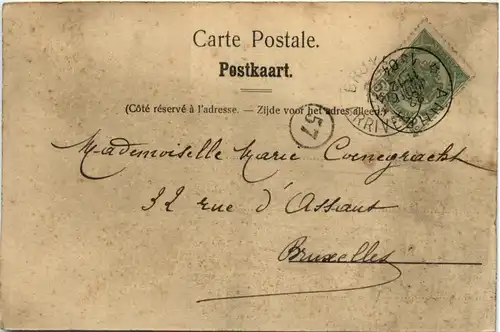 Carte Postale.
Postkaart.
(Côté réservé à l'adresse. — Zijde voor het adres alleen.)
57
Mademoiselle Marie Coenegracht
32 rue d'Assaut
Bruxelles